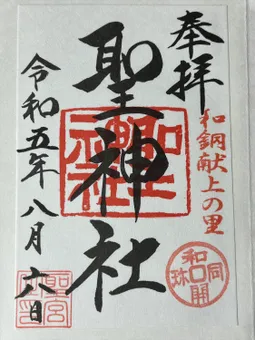 奉拝
和銅献上の里
聖神社
令和五年八月六日
和同開珎